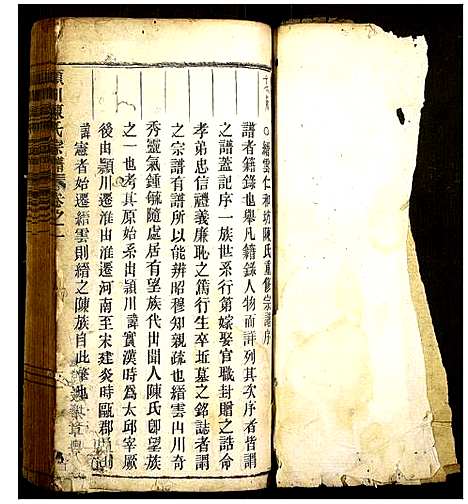 ○縉雲仁和坊陳氏重修宗譜序
譜者籍錄也舉凡籍錄人物而詳列其次序者皆謂
之譜蓋記序一族世系行第嫁娶官職封贈之誥命
孝弟忠信禮義廉恥之篤行生卒逝墓之銘誌者謂
之宗譜有譜所以能辨昭穆知親疏也縉雲山川奇
秀靈氣鍾毓隨處居有望族代出聞人陳氏卽望族
之一也考其原始系出潁川諱實漢時為太邱宰厥
後由潁川遷淮由淮遷河南至宋建炎時甌郡
諱憲者始遷縉雲則縉之陳族自此肇也
潁川陳氏宗譜 卷之一